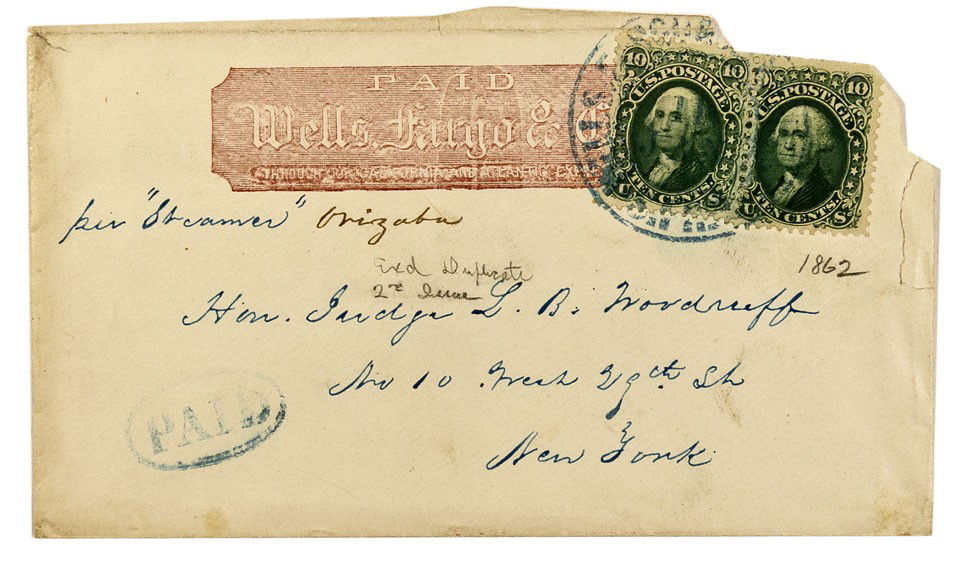 PAID
Wells, Fargo & C
THROUGH OUR CALIFORNIA AND ATLANTIC EX
10 10
U.S. POSTAGE
TEN CENTS.
U S
10
U.S. POSTAGE
TEN CENTS.
U S
per "Steamer" Orizaba
1862
Exd Duplicate
2nd Issue
Hon. Judge L. B. Woodruff
No 10 West 29th St
New York
PAID